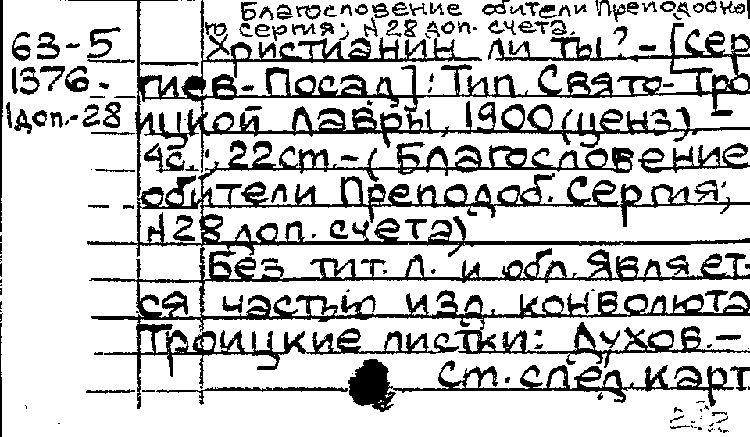 Благословение обители Преподобно
го Сергия; N 28 доп. счета.
63-5 Христианин ли ты? - [Сер
1376- гиев-Посад]: Тип. Свято-Тро
1доп.-28 ицкой Лавры, 1900 (ценз). -
4с.; 22 ст. - (Благословение
обители Преподоб. Сергия;
N 28 доп. счета)
Без тит. л. и обл. Являет-
ся частью изд. конволюта
Троицкие листки: Духов. -
См. след. карт